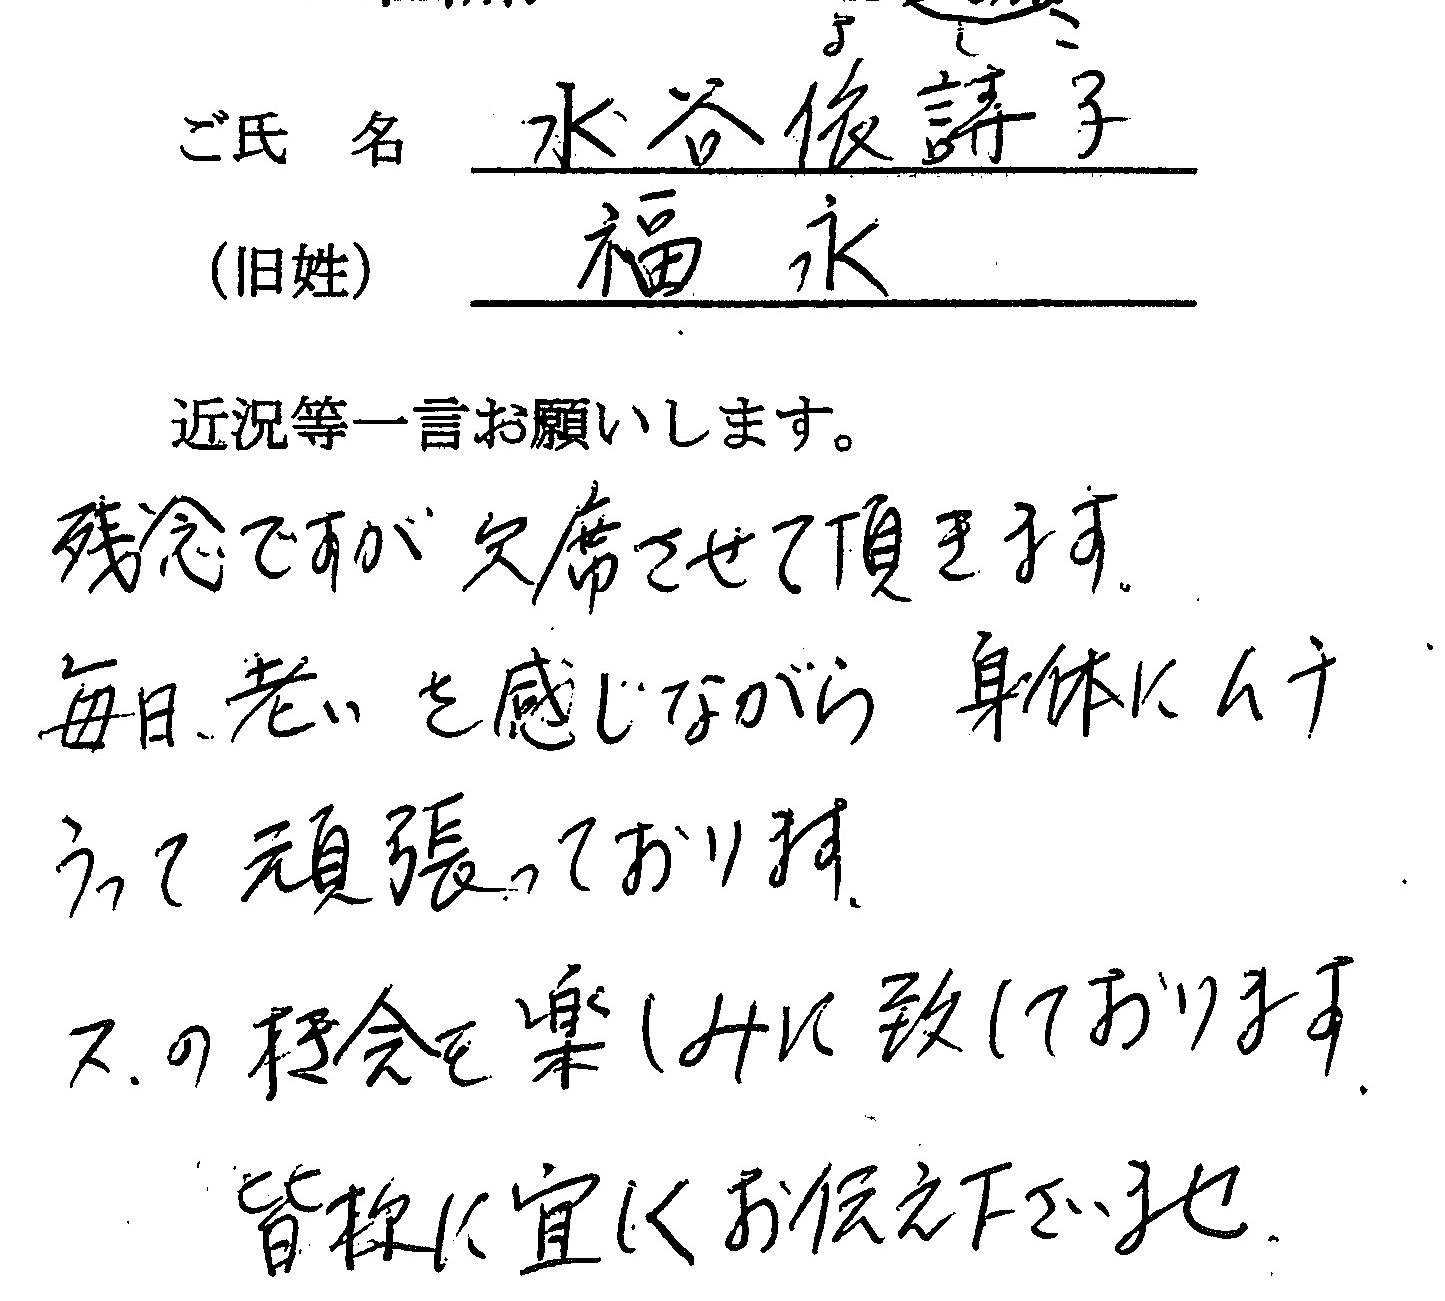 よ し こ
ご氏 名 水谷 俵請子
(旧姓) 福永
近況等一言お願いします。
残念ですが 欠席させて頂きます。
毎日、老いを感じながら 身体にムチ
うって 頑張っております。
又、の機会を楽しみに致しております。
皆様に宜しくお伝え下さいませ。